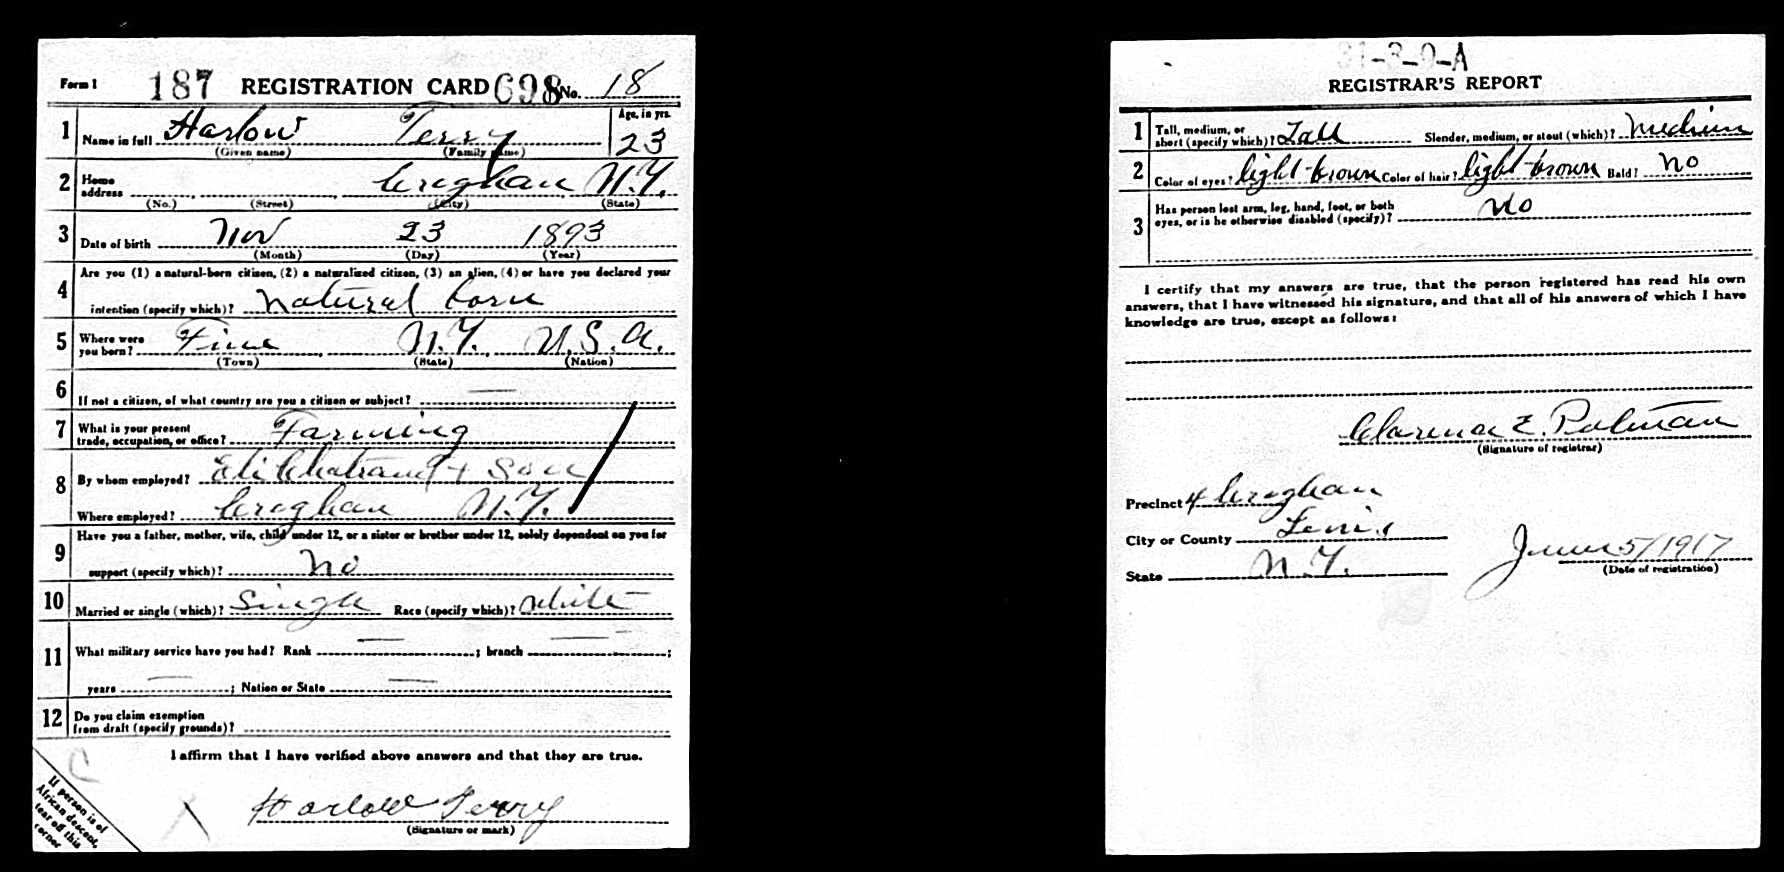 Form 1 187 REGISTRATION CARD 698 No. 18
1 Name in full Harlow Terry Age, in yrs. 23
(Given name) (Family name)
2 Home address Croghan N.Y.
(No.) (Street) (City) (State)
3 Date of birth Nov 23 1893
(Month) (Day) (Year)
4 Are you (1) a natural-born citizen, (2) a naturalized citizen, (3) an alien, (4) or have you declared your
intention (specify which)? Natural born
5 Where were you born? Fine N.Y. U.S.A.
(Town) (State) (Nation)
6 If not a citizen, of what country are you a citizen or subject? —
7 What is your present trade, occupation, or office? Farming
8 By whom employed? Eli & Son
Where employed? Croghan N.Y.
9 Have you a father, mother, wife, child under 12, or a sister or brother under 12, solely dependent on you for
support (specify which)? No
10 Married or single (which)? Single Race (specify which)? White
11 What military service have you had? Rank — ; branch — ;
years — ; Nation or State —
12 Do you claim exemption from draft (specify grounds)?
I affirm that I have verified above answers and that they are true.
Harlow Terry
(Signature or mark)
If person is of
African descent,
tear off this
corner
31-3-9-A
REGISTRAR'S REPORT
1 Tall, medium, or short (specify which)? Tall Slender, medium, or stout (which)? Medium
2 Color of eyes? light-brown Color of hair? light-brown Bald? No
3 Has person lost arm, leg, hand, foot, or both
eyes, or is he otherwise disabled (specify)? No
I certify that my answers are true, that the person registered has read his own
answers, that I have witnessed his signature, and that all of his answers of which I have
knowledge are true, except as follows:
Clarence E.
(Signature of registrar)
Precinct 4 Croghan
City or County Lewis
State N.Y. June 5/1917
(Date of registration)